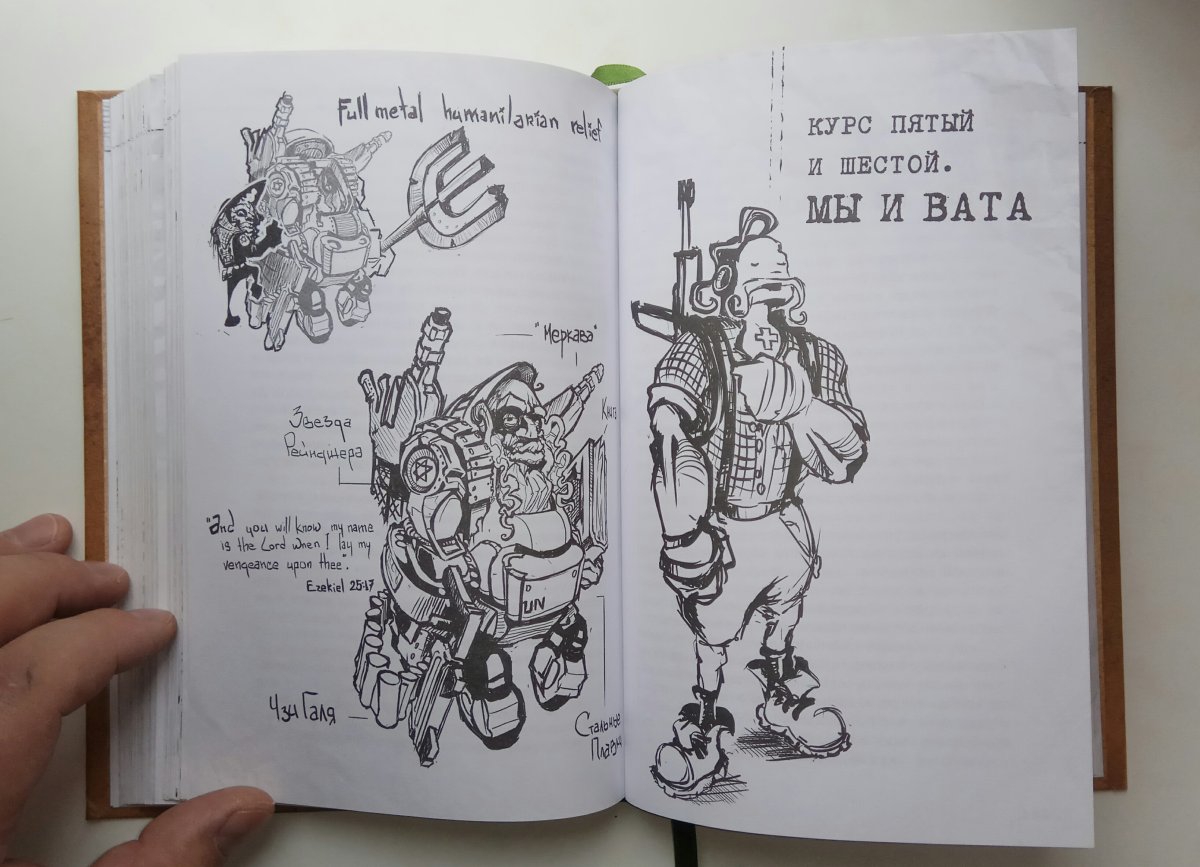 Full metal humanitarian relief
"Меркава"
Книга
Звезда
Рейнджера
"And you will know my name
is the Lord when I lay my
vengeance upon thee".
Ezekiel 25:17
UN
Чзи Галя
Стальные
КУРС ПЯТЫЙ
И ШЕСТОЙ.
МЫ И ВАТА